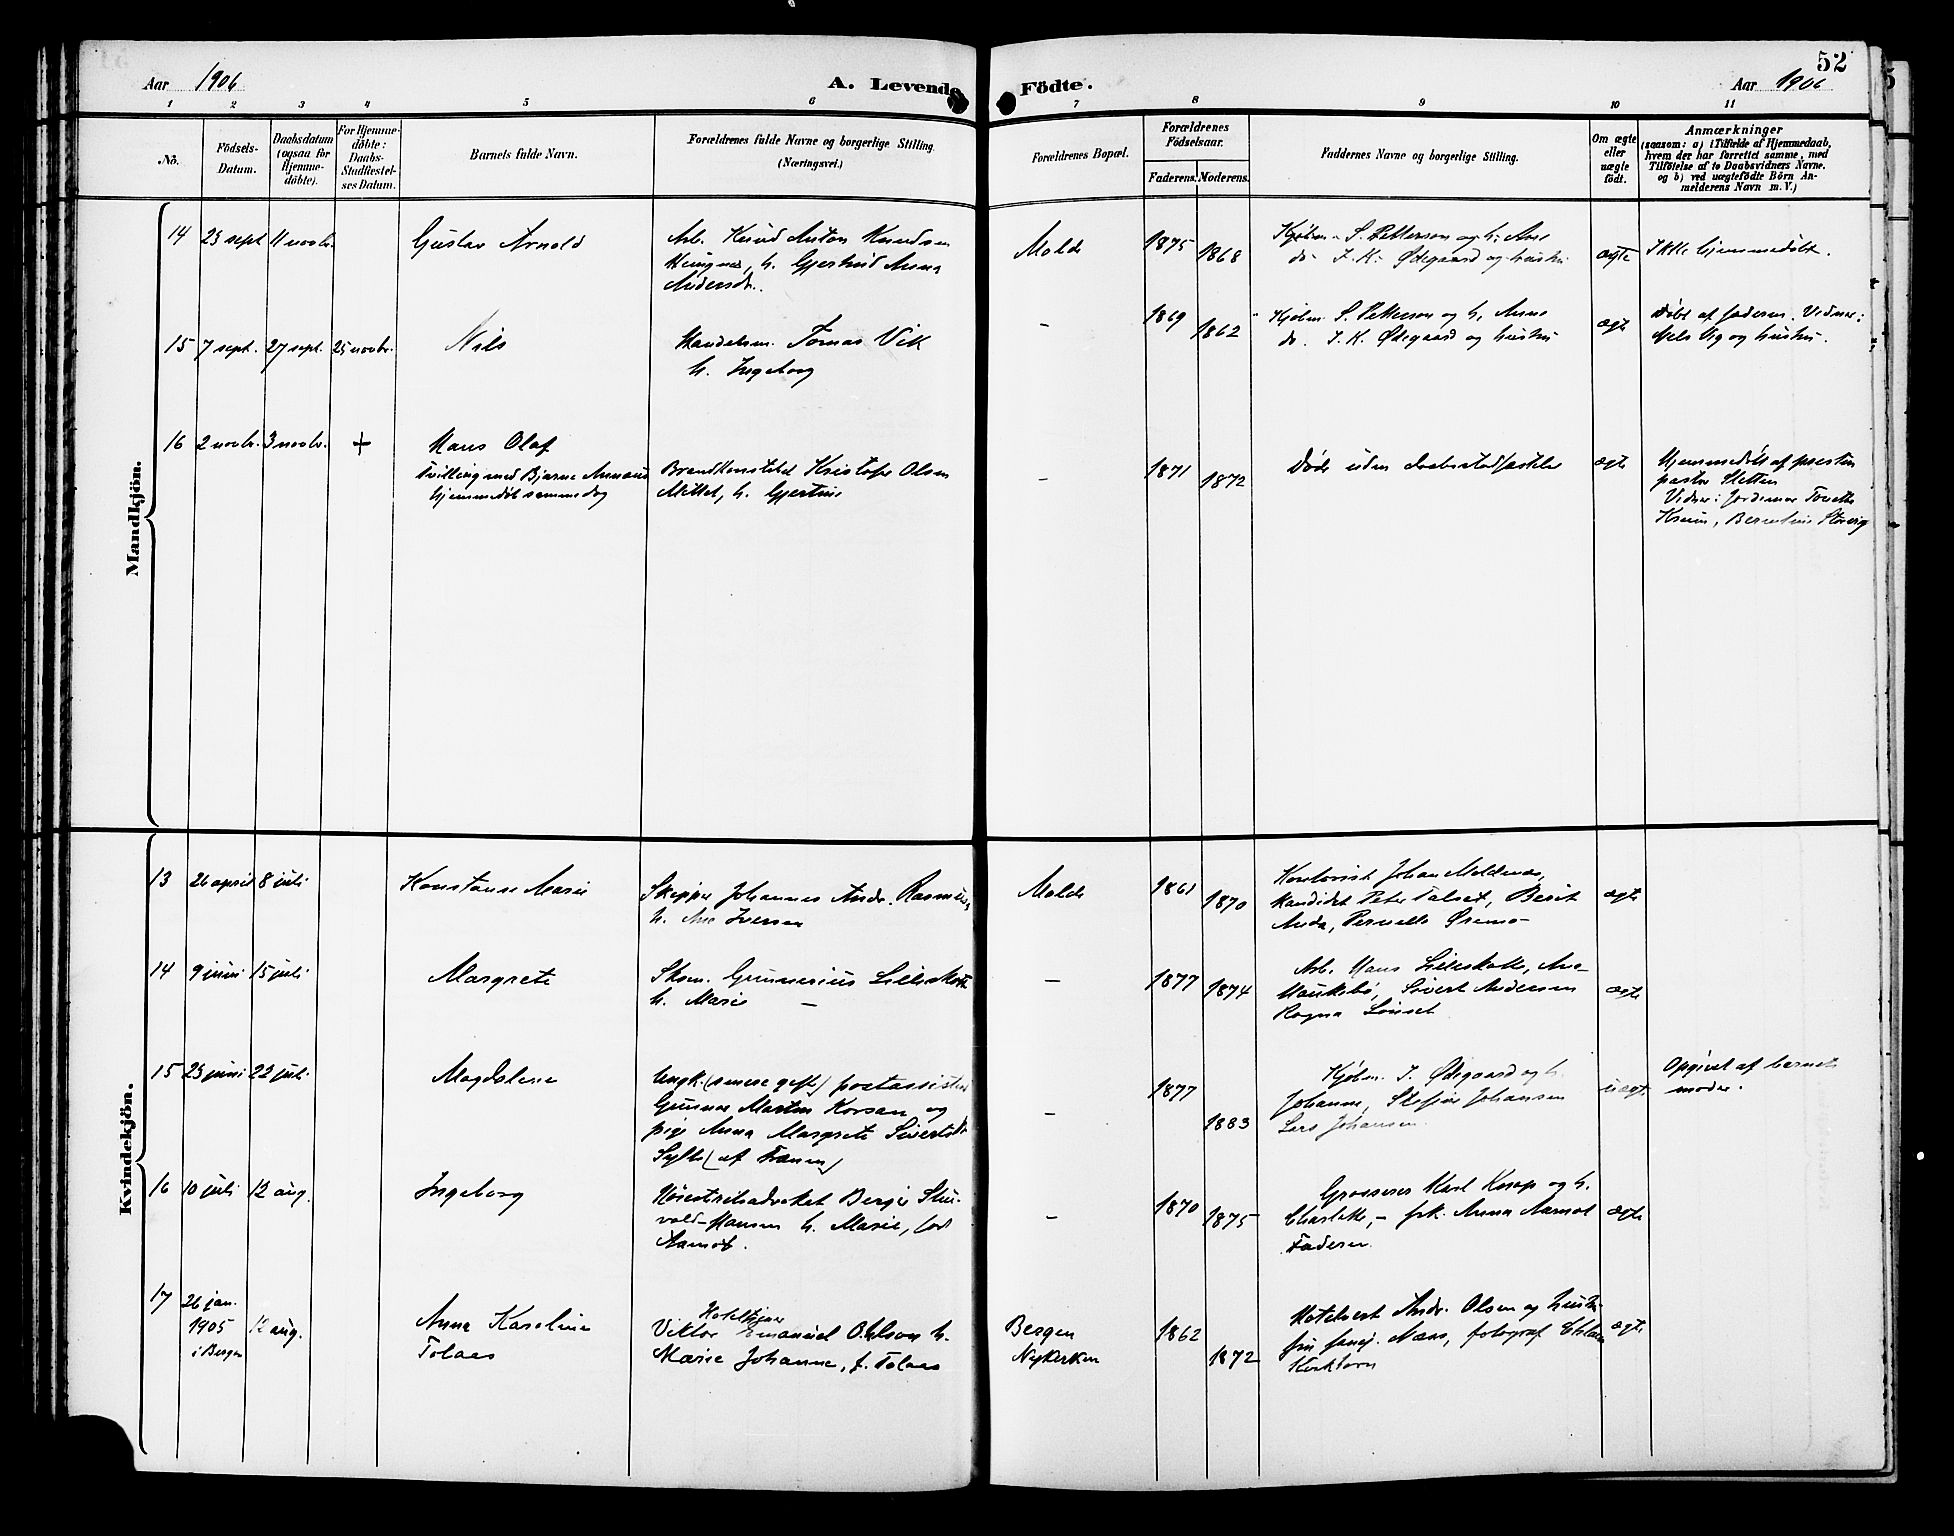 52
Aar 1906
A. Levende Födte.
Aar 1906
1 2 3 4 5 6 7 8 9 10 11
No.
Födsels-
Datum.
Daabsdatum
(ogsaa for
Hjemme-
döbte).
For Hjemme-
döbte:
Daabs-
Stadfæstel-
ses Datum.
Barnets fulde Navn.
Forældrenes fulde Navne og borgerlige Stilling.
(Næringsvei.)
Forældrenes Bopæl.
Forældrenes
Födselsaar.
Faderens. Moderens.
Faddernes Navne og borgerlige Stilling.
Om ægte
eller
uægte
födt.
Anmærkninger
(saasom: a) i Tilfælde af Hjemmedaab,
hvem der har forrettet samme, med
Tilföielse af to Daabsvidners Navne,
og b) ved uægtefödte Börn An-
melderens Navn m. V.)
Mandkjön.
14 23 sept. 11 novbr. Gustav Arnold
Arb. Knud Anton Knudsen
h. Gjertrud Anna
Andersdr.
Molde
1875 1868
Kjøbm. S. Petterson og h. Ane
do. I. K. Ødegaard og hustru
ægte
Ikke hjemmedøbt.
15 7 sept. 27 sept. 25 novbr. Nils
Handelsm. Tomas Vik
h. Ingeborg
-
1869 1862
Kjøbm. S. Petterson og h. Anne
do. I. K. Ødegaard og hustru
ægte
Døbt af faderen. Vidner:
Nels Vig og hustru.
16 2 novbr. 3 novbr. + Hans Olaf
Tvilling med Bjarne
hjemmedøbt samme dag
Brandkonstabel Kristofer Olsen
Mittet, h. Gjertine
-
1871 1872
Død uden daabsstadfæstelse
ægte
Hjemmedøbt af presten
pastor Sletten
Vidner: Jordemor
Berentine
Kvindekjön.
13 26 april 8 juli Konstanse Marie
Skipper Johannes Andr.
h. Ane Iversen
Molde
1861 1870
Kontorist Johan
kandidat Peter Talset, Berit
Anda, Pernelle Øremo
ægte
14 9 juni 15 juli Margrete
Skom. Gunnerius Lilleskotte
h. Marie -
-
1877 1874
Arb. Hans Lilleskotte, Ane
Haukebø, Sivert Andersen
Ragna Lønset
ægte
15 23 juni 22 juli Magdalene
Ungk. (senere gifte) postassistent
Gunnar Martin Korsan og
pige Anna Margrete Sivertsdtr
Sylte (af Frænen)
-
1877 1883
Kjøbm. I. Ødegaard og h.
Johanne, Johansen
Lars Johansen
uægte
Opgivet af barnets
moder.
16 10 juli 12 aug. Ingeborg
Høiesteretsadvokat Berger
Hansen h. Marie, fød
Aamot.
-
1870 1875
Grosserer Karl og h.
Charlotte, - frk. Anna Aamot
Faderen
ægte
17 26 jan.
1905
i Bergen
12 aug.
Anna Karoline
Tolaas
Hoteleier
Viktor Emanuel Ohlson h.
Marie Johanne, f. Tolaas
Bergen
Nykirken
1862 1872
Hotelvert Andr. Olsen og hustru
Næss, fotograf
ægte